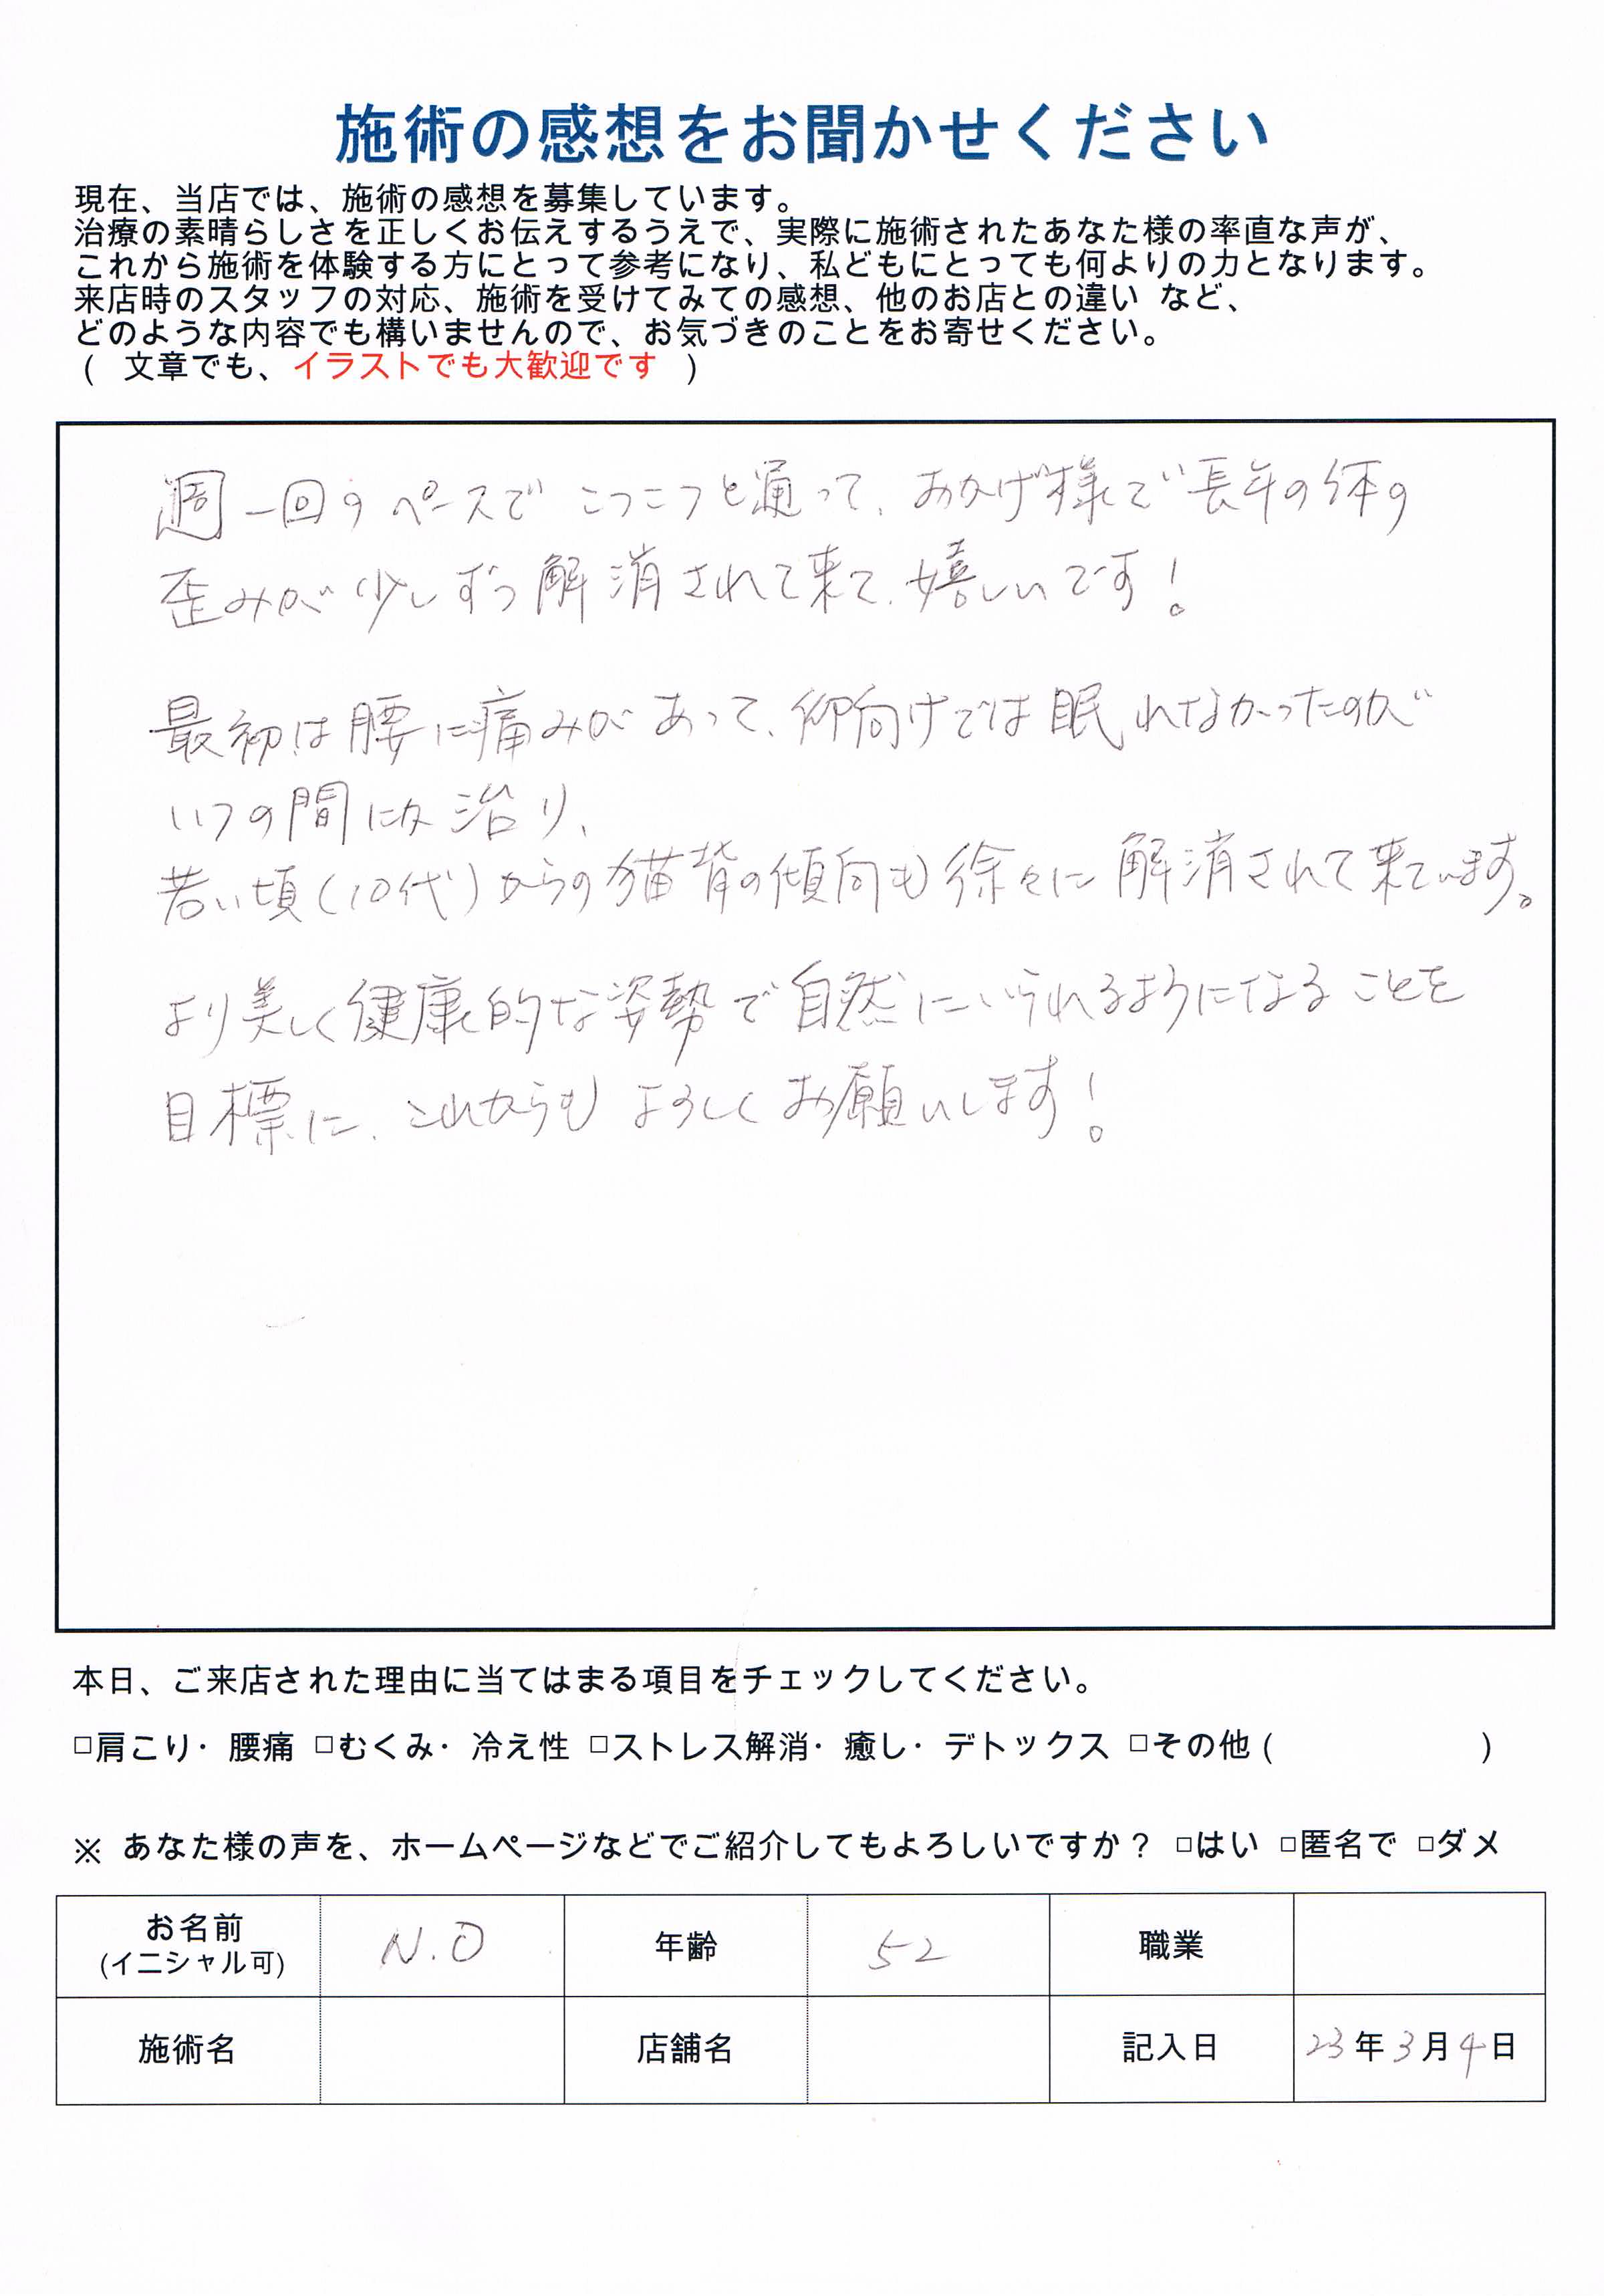 施術の感想をお聞かせください
現在、当店では、施術の感想を募集しています。
治療の素晴らしさを正しくお伝えするうえで、実際に施術されたあなた様の率直な声が、
これから施術を体験する方にとって参考になり、私どもにとっても何よりの力となります。
来店時のスタッフの対応、施術を受けてみての感想、他のお店との違い など、
どのような内容でも構いませんので、お気づきのことをお寄せください。
( 文章でも、イラストでも大歓迎です )
週一回のペースでこつこつと通って、おかげ様で長年の体の
歪みが少しずつ解消されて来て、嬉しいです!
最初は腰に痛みがあって、仰向けでは眠れなかったのが
いつの間にか治り、
若い頃(10代)からの猫背の傾向も徐々に解消されて来ています。
より美しく健康的な姿勢で自然にいられるようになることを
目標に、これからもよろしくお願いします!
本日、ご来店された理由に当てはまる項目をチェックしてください。
□肩こり・腰痛 □むくみ・冷え性 □ストレス解消・癒し・デトックス □その他( )
※ あなた様の声を、ホームページなどでご紹介してもよろしいですか? □はい □匿名で □ダメ
お名前 N.O 年齢 52 職業
(イニシャル可)
施術名 店舗名 記入日 23年3月4日